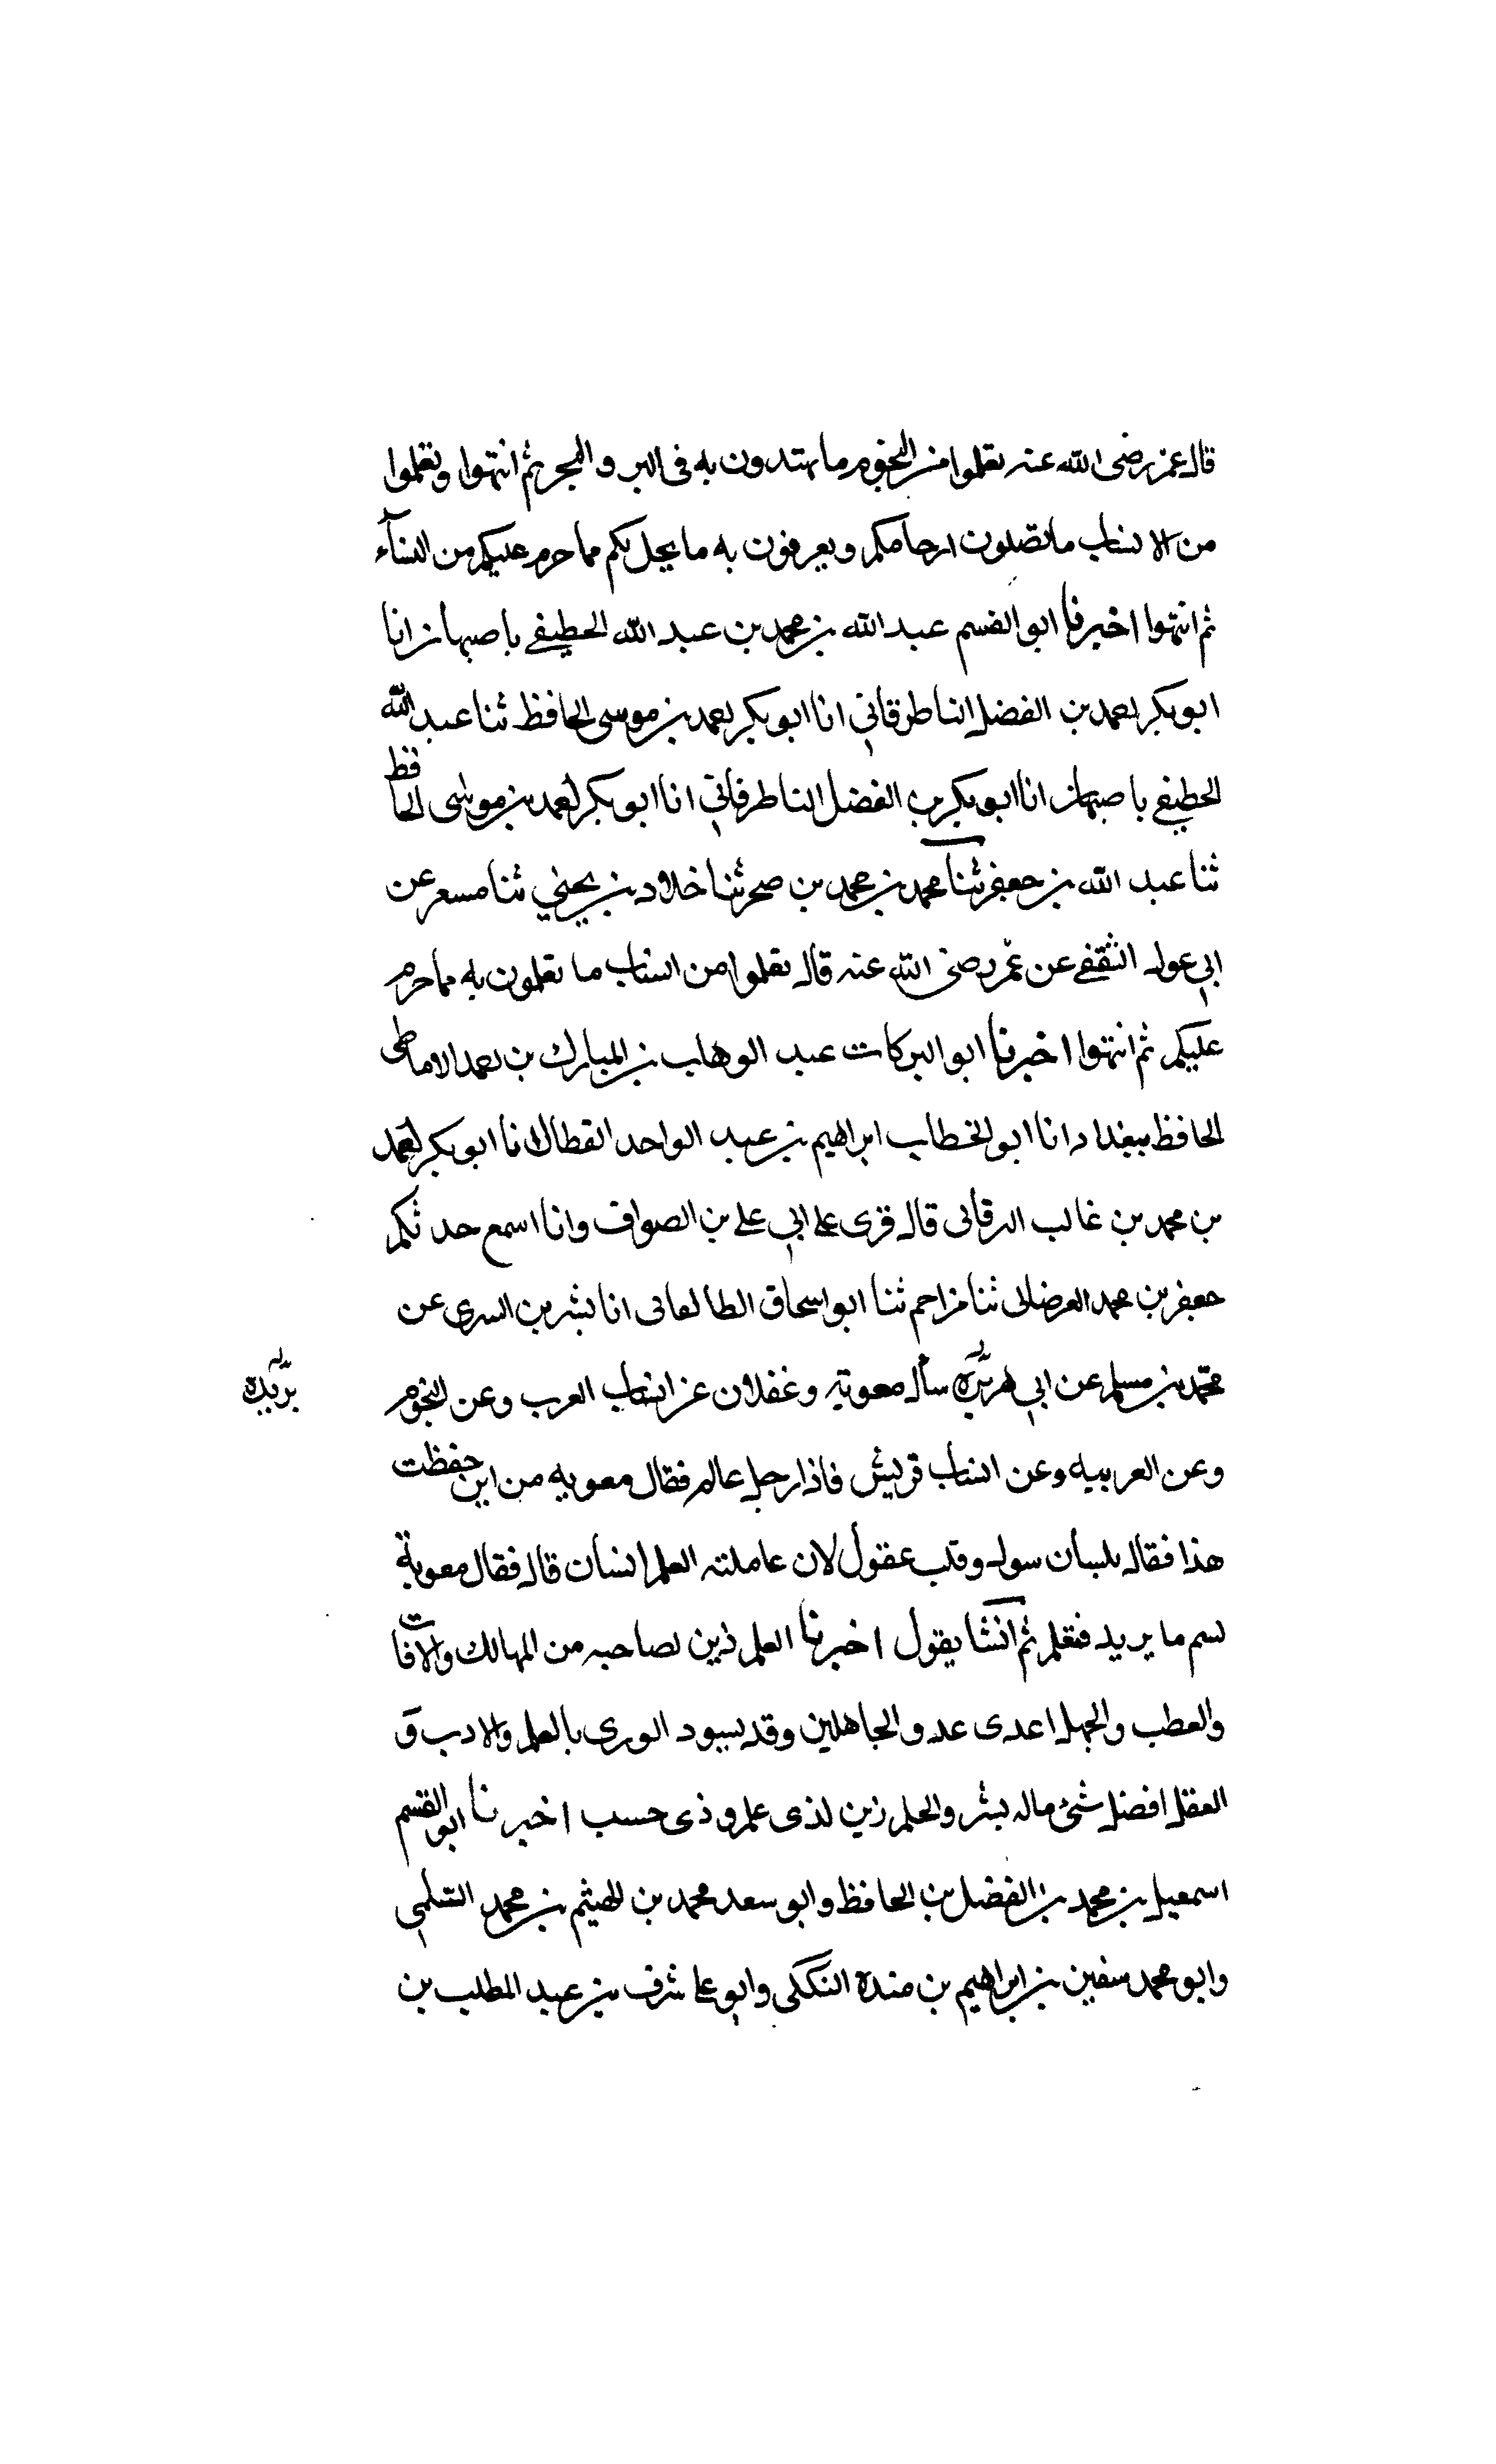 قال عمر رضى الله عنه تعلموا من النجوم ما يهتدون به فى البر والبحر ثم انتهوا وتعلموا
من الانساب ما تصلون ارحامكم ويعرفون به ما يحل لكم مما حرم عليكم من النسآء
ثم انتهوا اخبرنا ابو القسم عبد الله بن محمد بن عبد الله الحطيفي باصبهان انا
ابو بكر احمد بن الفضل الناطرقاني انا ابو بكر احمد بن موسى الحافظ ثنا عبد الله
الحطيفي باصبهان انا ابو بكر بن الفضل الناطرفاني انا ابو بكر احمد بن موسى الحافظ
ثنا عبد الله بن جعفر ثنا محمد بن محمد بن صخر ثنا خلاد بن يحيي ثنا مسعر عن
ابي عول الثقفي عن عمر رضى الله عنه قال تعلموا من انساب ما تعلمون به مما حرم
عليكم ثم انتهوا اخبرنا ابو البركات عبد الوهاب بن المبارك بن احمد الاماطى
الحافظ ببغداد انا ابو الخطاب ابراهيم بن عبد الواحد القطان انا ابو بكر احمد
بن محمد بن غالب البرقانى قال قرى على ابي علي بن الصواف وانا اسمع حدثكم
جعفر بن محمد ثنا مزاحم ثنا ابو اسحاق الطالقانى انا بشر بن السرى عن
محمد بن مسلم عن ابي هريرة سأل معوية وغفلان عن انساب العرب وعن النجوم
بريدة
وعن العربيه وعن انساب قريش فاذا رجل عالم فقال معويه من اين حفظت
هذا فقال بلسان سول وقلب عقول لان عاملته العلم انسان قال فقال معوية
لسم ما يريد فتعلم ثم انشا يقول اخبرنا العلم زين لصاحبه من المهالك والافات
والعطب والجهل اعدى عدو الجاهلين وقد يسود الورى بالعلم والادب و
العقل افضل شئ ماله بشر والحلم زين لذى علم و ذى حسب اخبرنا ابو القسم
اسمعيل بن محمد بن الفضل بن الحافظ وابو سعد محمد بن الهيثم بن محمد السلمي
وابو محمد سفين بن ابراهيم بن مندة وابو على شرف بن عبد المطلب بن